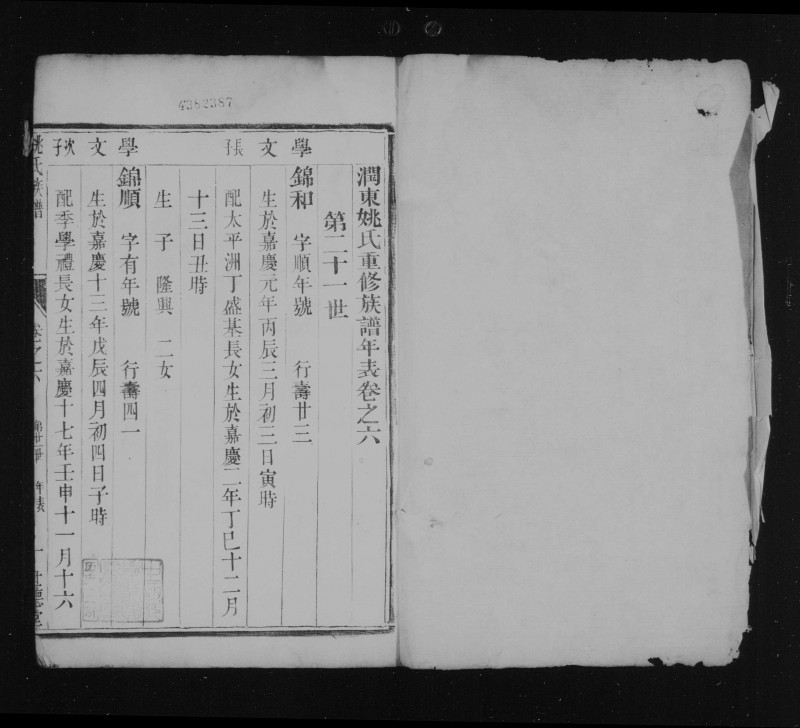 4382387
潤東姚氏重修族譜年表卷之六
第二十一世
學文長子
錦和 字順年號 行壽廿三
生於嘉慶元年丙辰三月初三日寅時
配太平洲丁盛基長女生於嘉慶二年丁巳十二月
十三日丑時
生子 隆興 二女
學文次子
錦順 字有年號 行壽四一
生於嘉慶十三年戊辰四月初四日子時
配季學禮長女生於嘉慶十七年壬申十一月十六
姚氏族譜 卷之六 年表 一